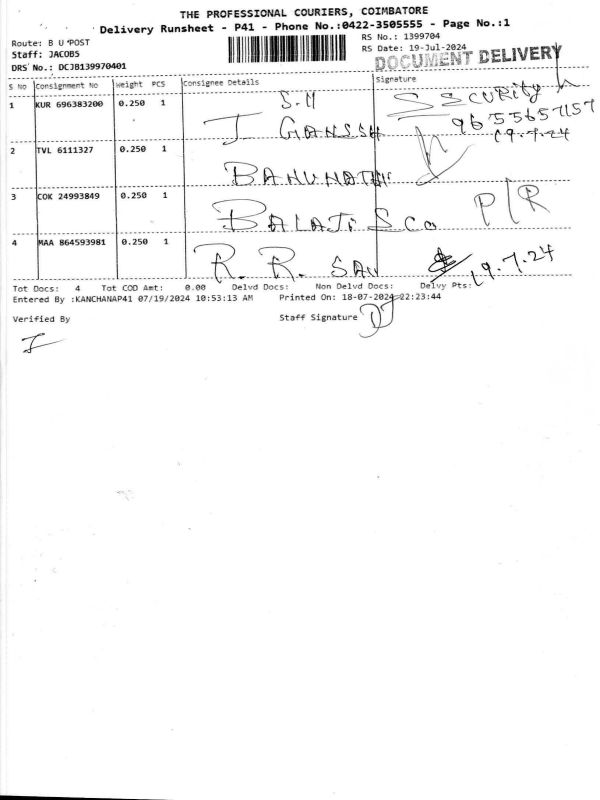 THE PROFESSIONAL COURIERS, COIMBATORE
Delivery Runsheet - P41 - Phone No.:0422-3505555 - Page No.:1
Route: B U POST
RS No.: 1399704
Staff: JACOB5
RS Date: 19-Jul-2024
DRS No.: DCJB139970401
DOCUMENT DELIVERY
S No Consignment No Weight PCS Consignee Details Signature
1 KUR 696383200 0.250 1 S.M Security
J GANSSH 9655657157
19.7.24
2 TVL 6111327 0.250 1
BANUNATHI
3 COK 24993849 0.250 1
BALAJI S Co P/R
4 MAA 864593981 0.250 1
R. R. SAN 19.7.24
Tot Docs: 4 Tot COD Amt: 0.00 Delvd Docs: Non Delvd Docs: Delvy Pts:
Entered By :KANCHANAP41 07/19/2024 10:53:13 AM Printed On: 18-07-2024 22:23:44
Verified By Staff Signature